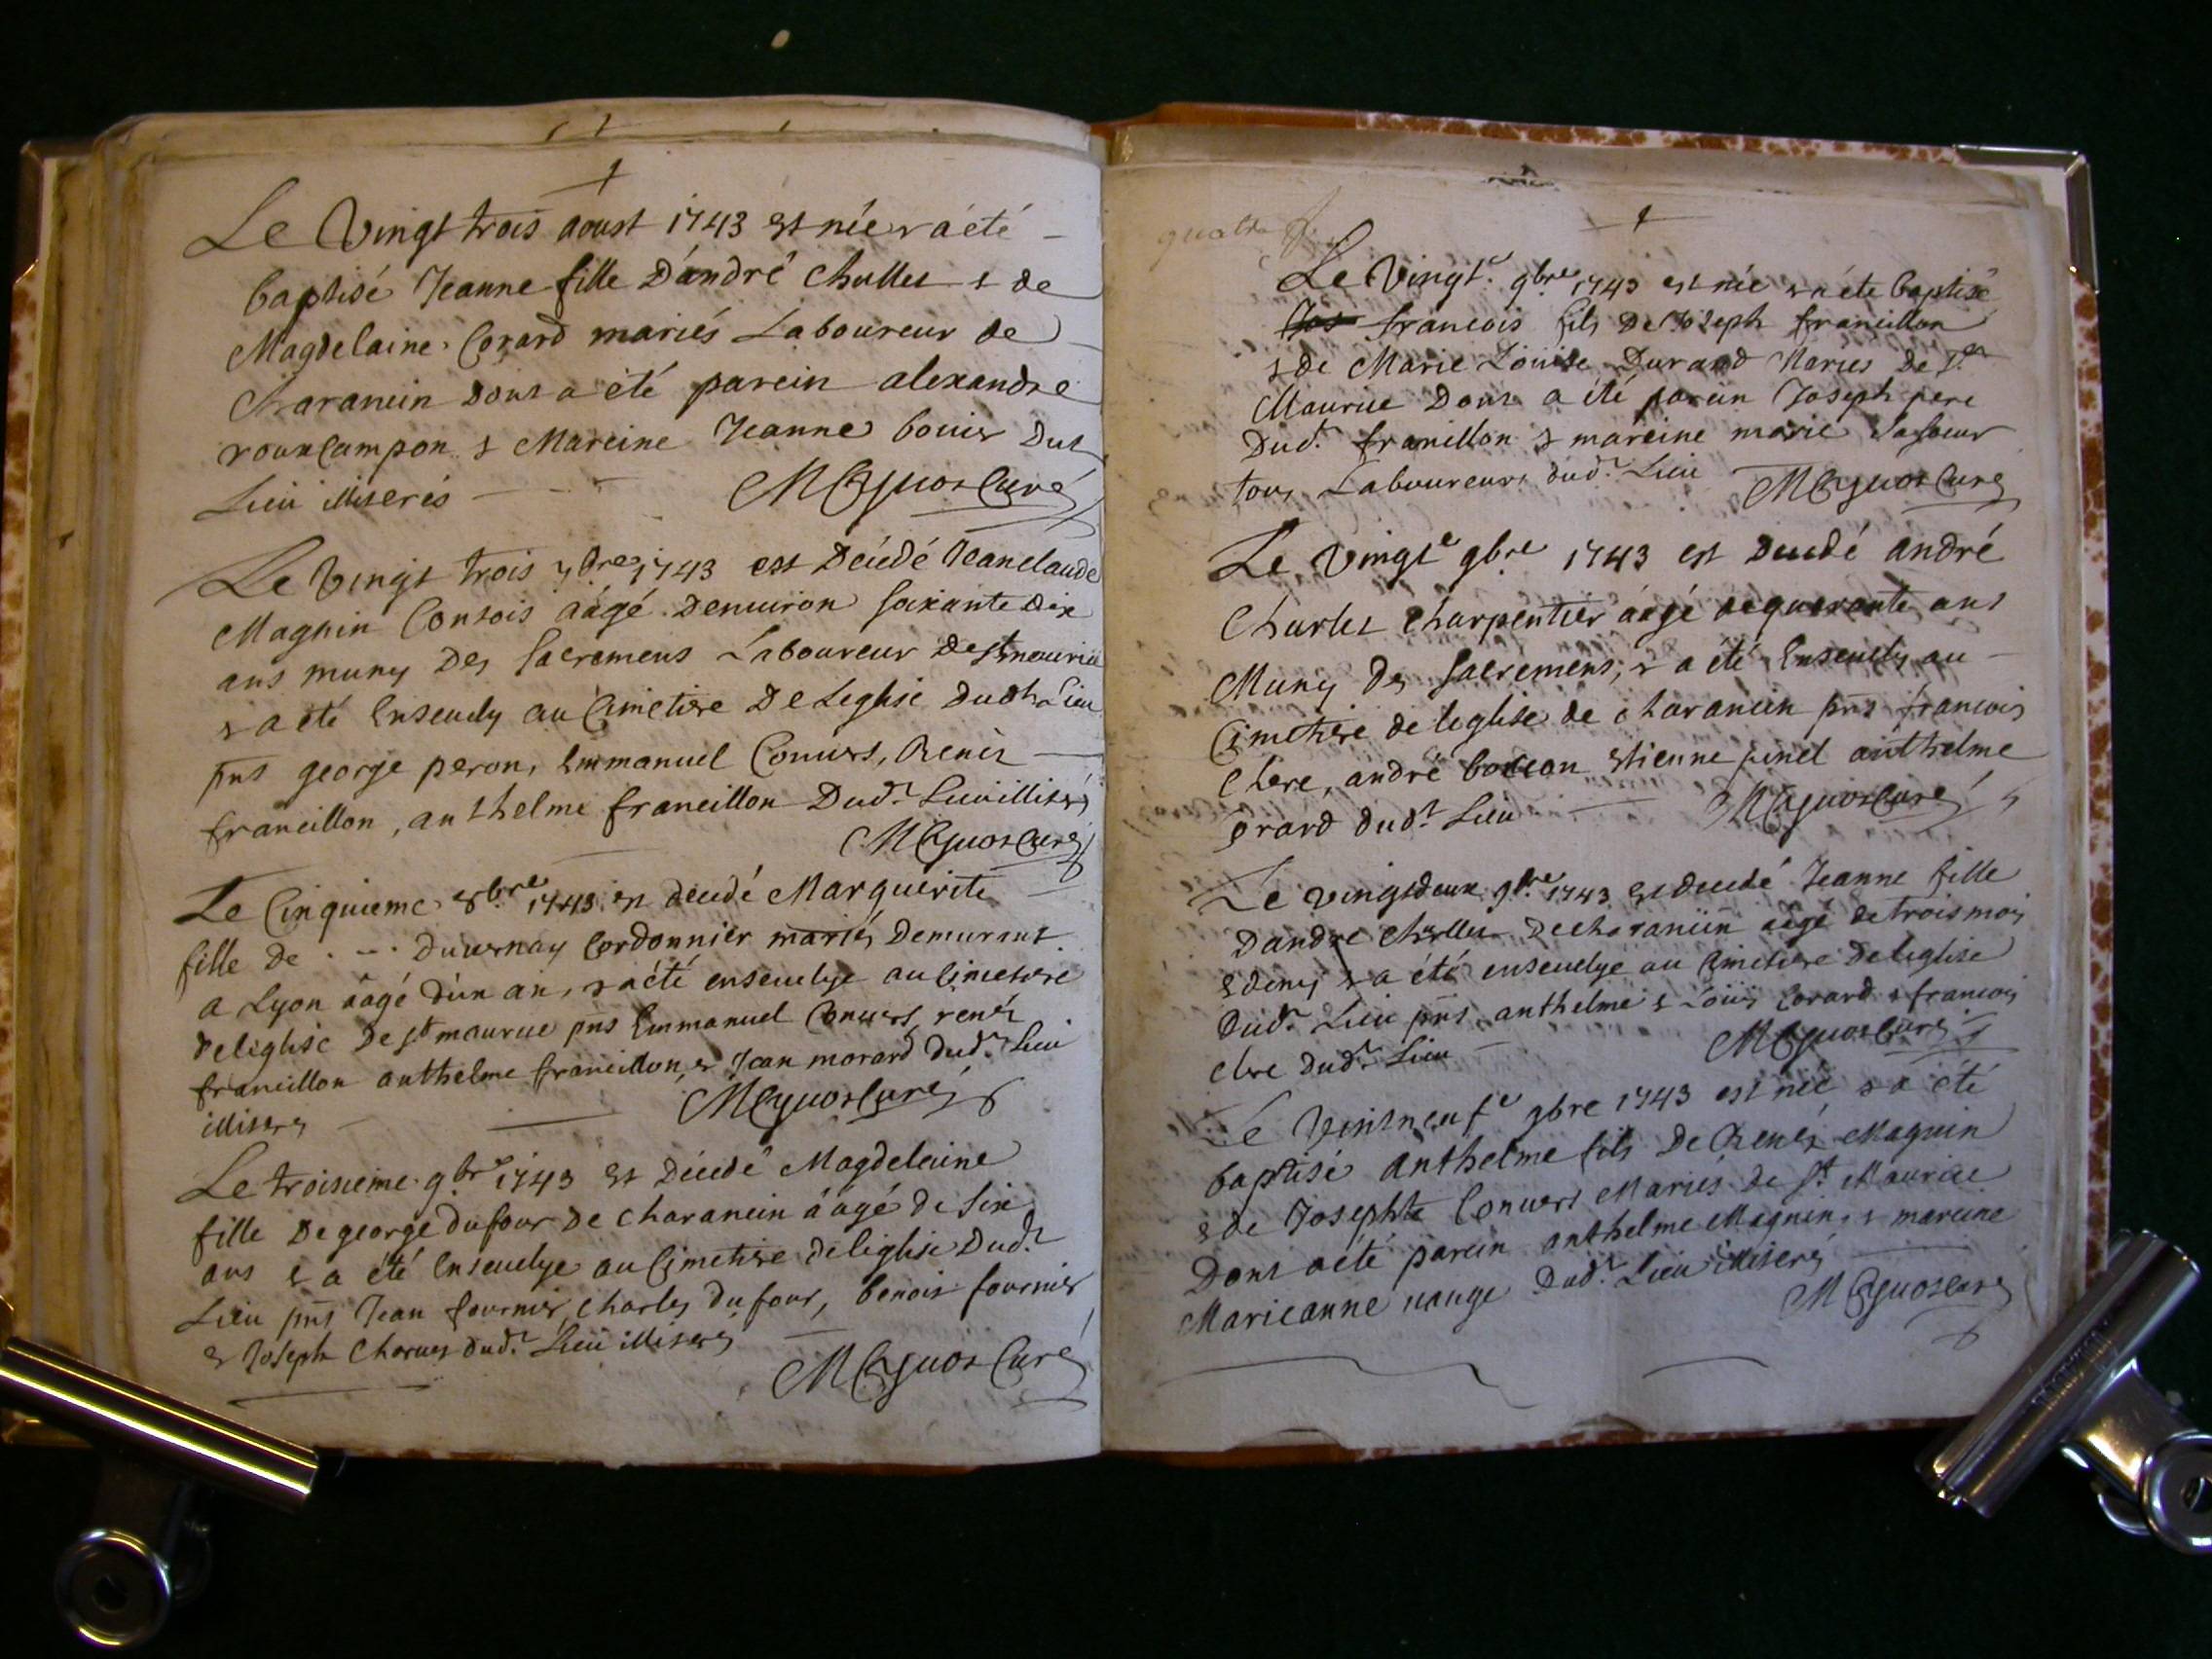 Le Vingt trois aoust 1743 est née & a été
baptisé Jeanne fille D'andré Chullet & de
Magdelaine Corard mariés Laboureur de
Charancin dont a été parein alexandre
roux Campon & Mareine Jeanne bouier Dut
Lieu illiserés
MCyuoz Curé
Le Vingt trois 7bre 1743 est Décédé Jeanclaude
Magnin Consois âagé Denuiron soixante Dix
ans muny Des sacremens Laboureur de st maurice
& a été Enseuely au Cimetiere De Leglise Dudt Lieu
pnts george peron, Emmanuel Conuers, Renéz
francillon, anthelme francillon Dudt Lieu illiserés
MCyuoz Curé
Le Cinquieme 8bre 1743 est décédé Marguerite
fille de . - . . Duuernay Cordonnier mariés Demurant
a Lyon âagé d'un an, & a été enseuelye au Cimetiere
deleglise De st maurice pnts Emmanuel Conuers, renéz
francillon anthelme francillon, & Jean morard dudt Lieu
illiserés
MCyuoz Curé
Le troisieme 9bre 1743 est Décédé Magdeleine
fille De george dufour de charancin âagé de six
ans & a été Enseuelye au Cimetiere deleglise Dudt
Lieu pnts Jean fournier, Charles dufour, benois fournier
& Joseph Charuet dudt Lieu illiserés
MCyuoz Curé
quatre
Le Vingte 9bre 1743 est née & a été baptisé
Jos francois fils De Joseph francillon
& de Marie Loüise Durand Mariés De st
Maurice Dont a été parein Joseph pere
Dudt francillon & mareine marie sa soeur
tous Laboureurs dudt Lieu
MCyuoz Curé
Le Vingte 9bre 1743 est Decedé andré
Charlet Charpentier âagé de quarante ans
Muny des sacremens, & a été Enseuely au
Cimetiere de leglise de charancin pnts francois
Clere, andré bosson Etienne pinel anthelme
grard dudt Lieu
MCyuoz Curé
Le vingtdeux 9bre 1743 est decedé Jeanne fille
Dandré chullet De charancin aagé de trois mois
& demy & a été enseuelye au Cimetiere Deleglise
Dudt Lieu pnts anthelme & Loüis Corard & francois
Clere dudt Lieu
MCyuoz Curé
Le Vintneufe 9bre 1743 est née & a été
baptisé anthelme fils De Renéz Magnin
& de Josephte Conuers Mariés de st Maurice
Dont a été parein anthelme Magnin, & mareine
Marieanne nange Dudt Lieu illiserés
MCyuoz Curé